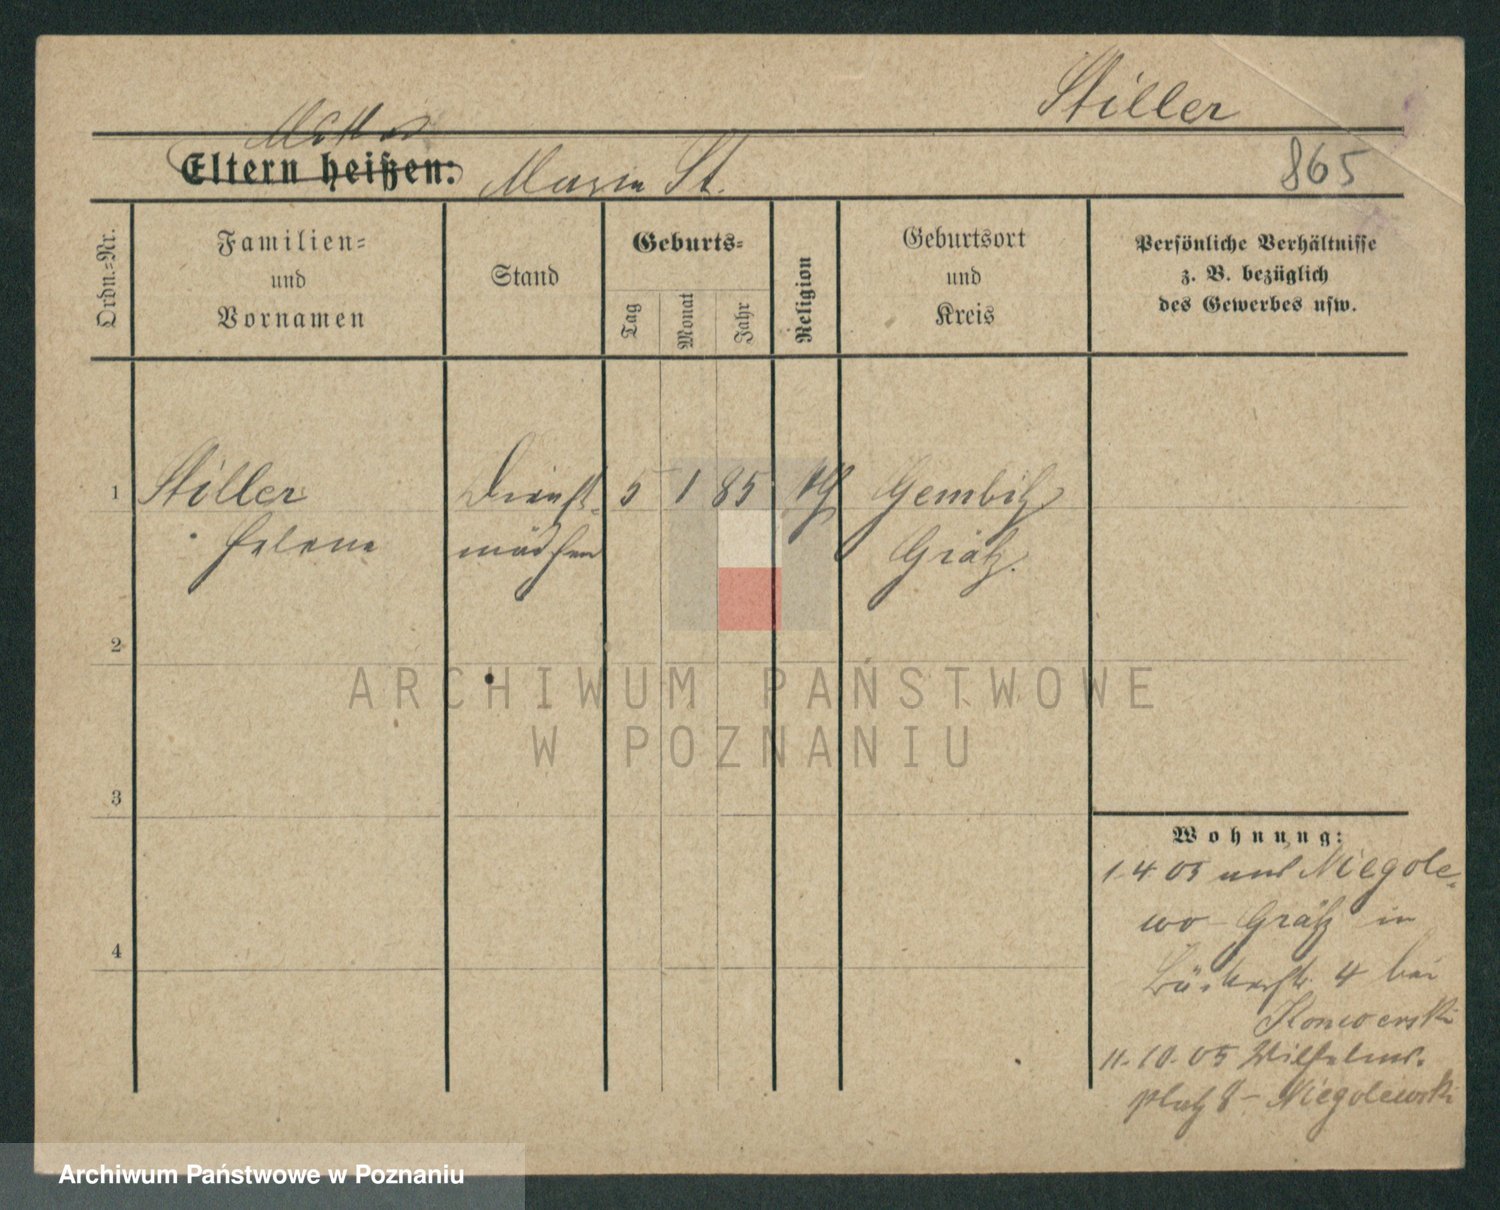 Stiller
Mutter
Eltern heißen: Maria St.
865
Ordn.=Nr.
Familien=
und
Vornamen
Stand
Geburts=
Tag
Monat
Jahr
Religion
Geburtsort
und
Kreis
Persönliche Verhältnisse
z. B. bezüglich
des Gewerbes usw.
1 Stiller Dienst- 5 1 85 Gembitz
Helene mädchen Grätz.
2
3
4
ARCHIWUM PAŃSTWOWE
W POZNANIU
Wohnung:
1.4 05 aus Niegole-
wo Grätz in
Bäckerstr. 4 bei
Konwerski
11.10.05 Wilhelms-
platz 8 - Niegolewski
Archiwum Państwowe w Poznaniu